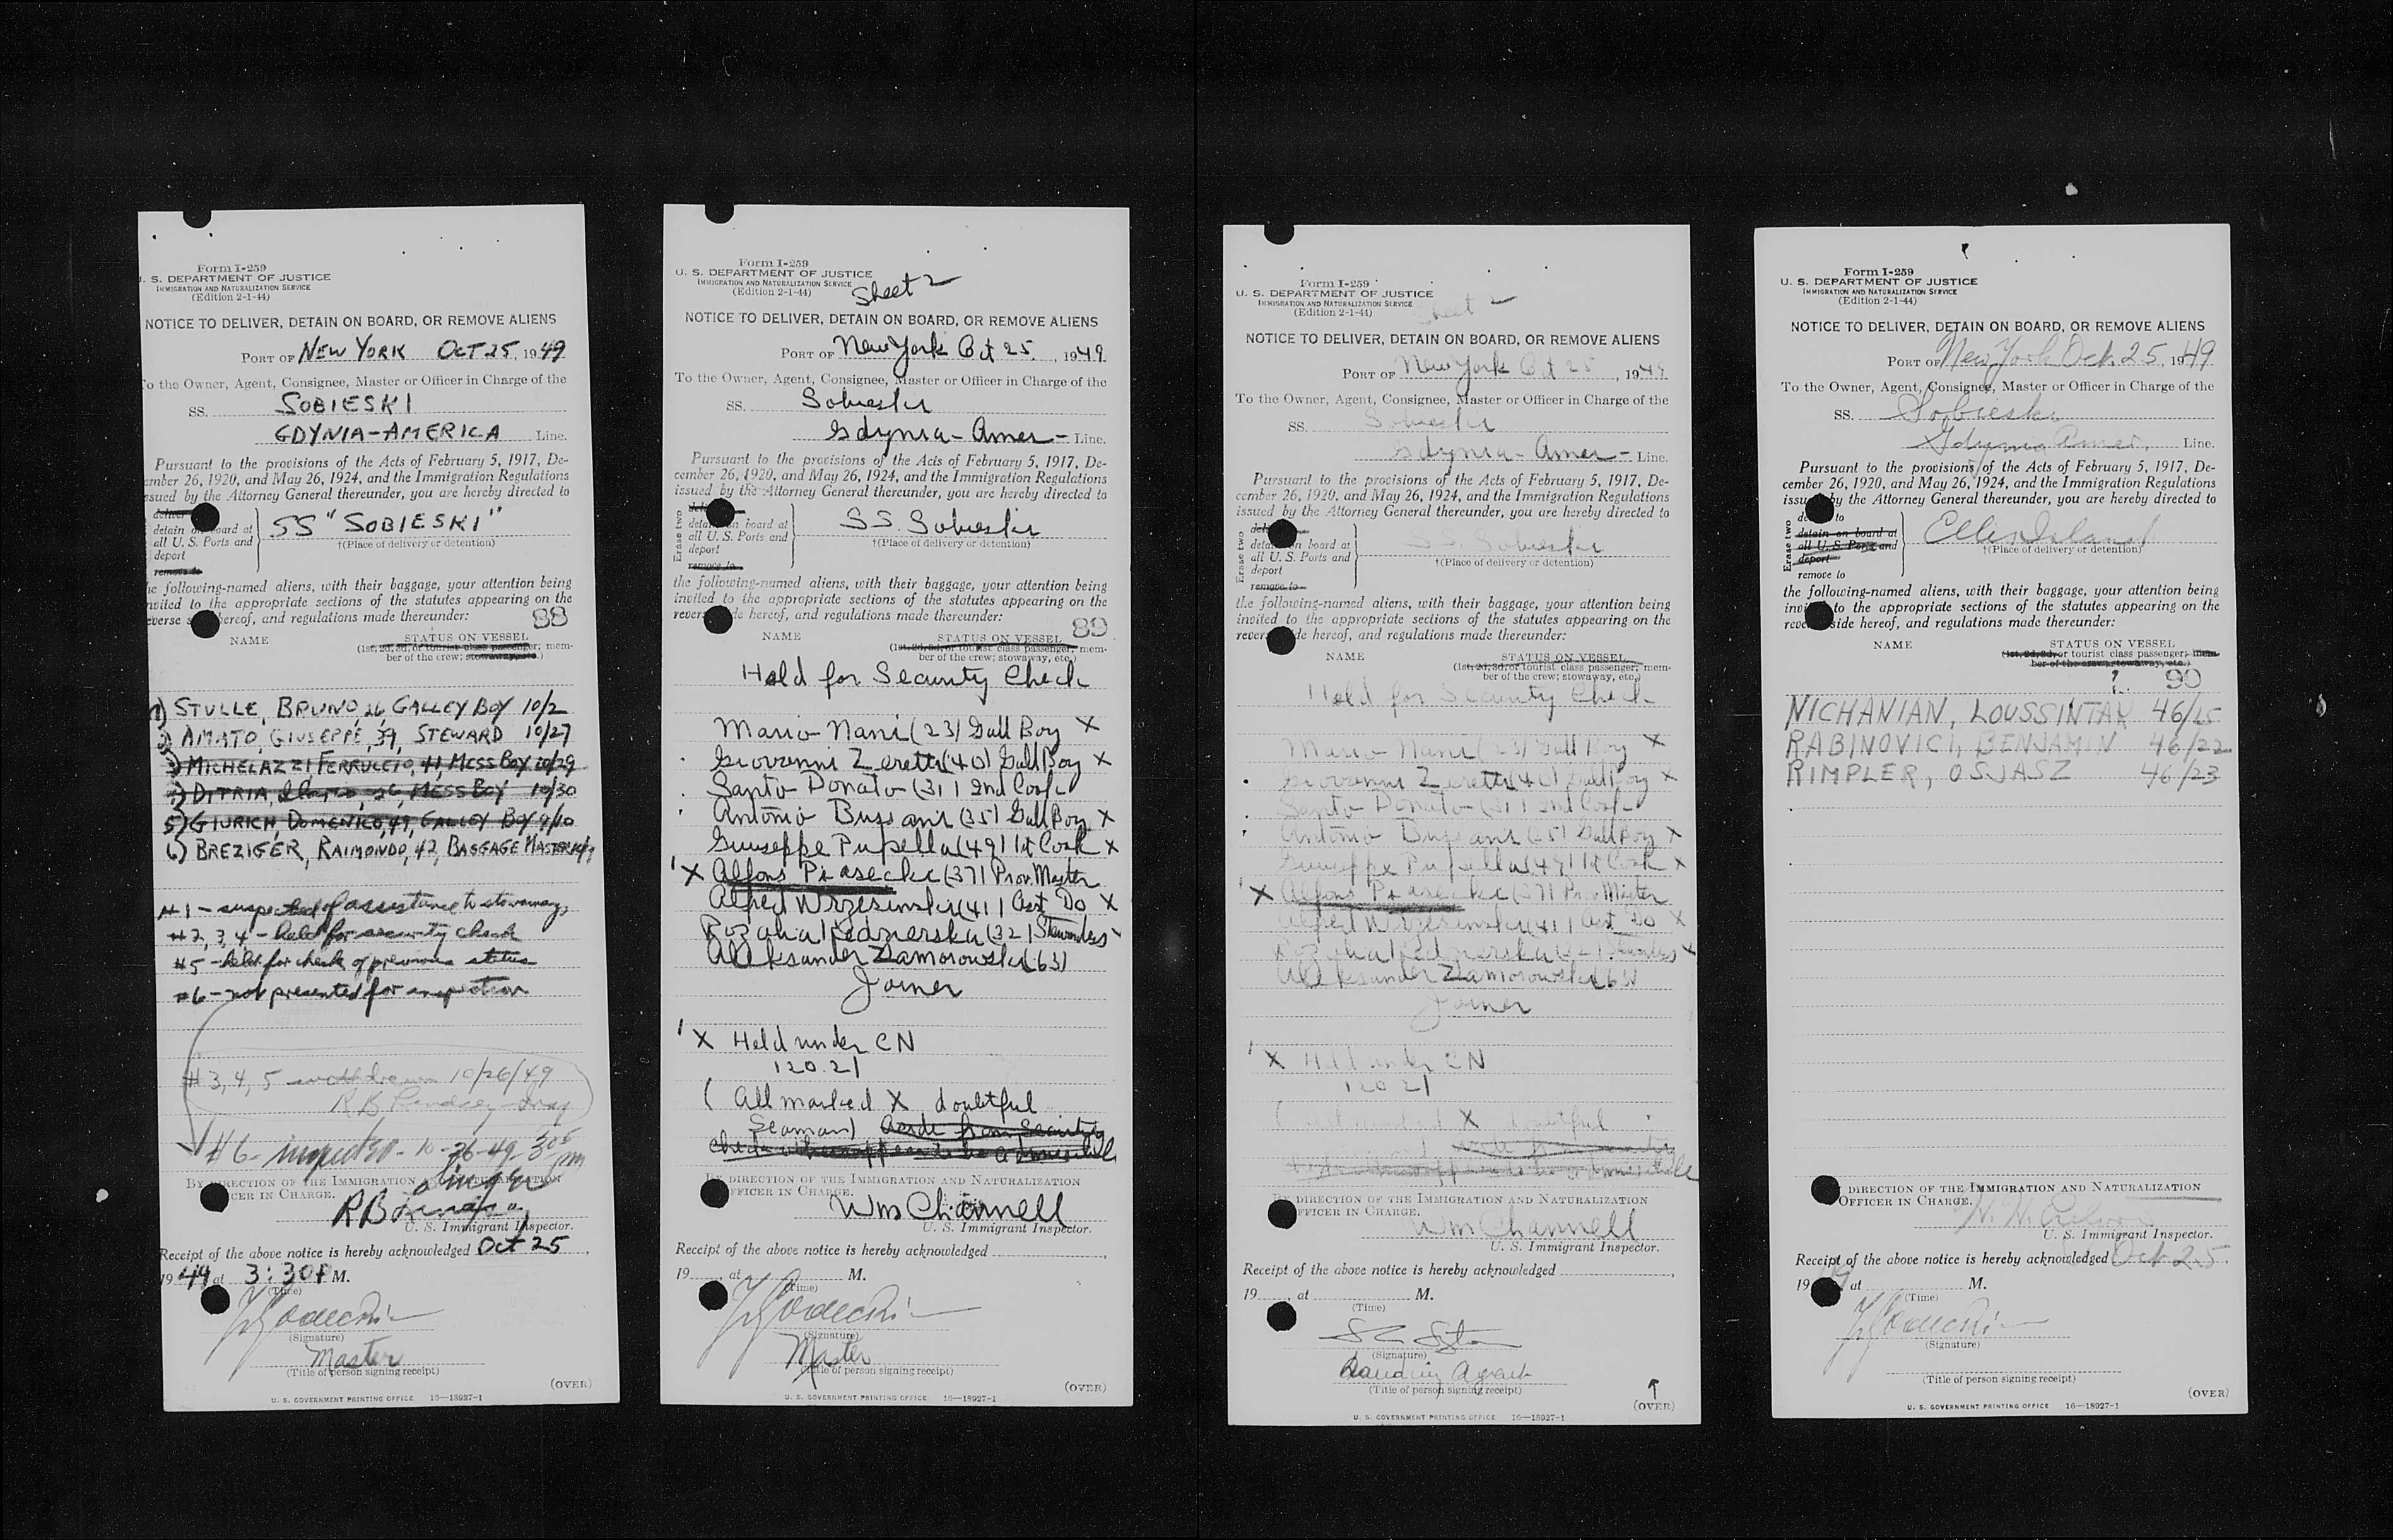 Form I-259
U. S. DEPARTMENT OF JUSTICE
IMMIGRATION AND NATURALIZATION SERVICE
(Edition 2-1-44)
NOTICE TO DELIVER, DETAIN ON BOARD, OR REMOVE ALIENS
PORT OF NEW YORK OCT 25, 1949
To the Owner, Agent, Consignee, Master or Officer in Charge of the
SS. SOBIESKI
GDYNIA-AMERICA Line.
Pursuant to the provisions of the Acts of February 5, 1917, De-
cember 26, 1920, and May 26, 1924, and the Immigration Regulations
issued by the Attorney General thereunder, you are hereby directed to
deliver
detain on board at
all U. S. Ports and
deport
remove to
SS "SOBIESKI"
†(Place of delivery or detention)
the following-named aliens, with their baggage, your attention being
invited to the appropriate sections of the statutes appearing on the
reverse side hereof, and regulations made thereunder:
88
NAME STATUS ON VESSEL
(1st, 2d, 3d, or tourist class passenger; mem-
ber of the crew; stowaway, etc.)
1) STULLE, BRUNO, 26, GALLEY BOY 10/2
2) AMATO, GIUSEPPE, 39, STEWARD 10/27
3) MICHELAZZI, FERRUCCIO, 41, MESS BOY 10/29
4) DITRIA, 26, MESS BOY 10/30
5) GIURICH, DOMENICO, 49, GALLEY BOY 9/10
6) BREZIGER, RAIMONDO, 42, BAGGAGE MASTER
#1 - suspected of assistance to stowaway,
#2, 3, 4 - held for security check
#5 - held for check of previous status
#6 - not presented for inspection
#3, 4, 5 withdrawn 10/26/49
#6 - inspected - 10-26-49 - 305 pm
BY DIRECTION OF THE IMMIGRATION AND NATURALIZATION
OFFICER IN CHARGE.
U. S. Immigrant Inspector.
Receipt of the above notice is hereby acknowledged Oct 25,
1949 at 3:30 P M.
(Time)
(Signature)
Master
(Title of person signing receipt)
(OVER)
U. S. GOVERNMENT PRINTING OFFICE 16—18927-1
Form I-259
U. S. DEPARTMENT OF JUSTICE
IMMIGRATION AND NATURALIZATION SERVICE
(Edition 2-1-44)
Sheet 2
NOTICE TO DELIVER, DETAIN ON BOARD, OR REMOVE ALIENS
PORT OF New York Oct 25, 1949
To the Owner, Agent, Consignee, Master or Officer in Charge of the
SS. Sobieski
Gdynia-Amer- Line.
Pursuant to the provisions of the Acts of February 5, 1917, De-
cember 26, 1920, and May 26, 1924, and the Immigration Regulations
issued by the Attorney General thereunder, you are hereby directed to
Erase two
detain on board at
all U. S. Ports and
deport
remove to
S.S. Sobieski
†(Place of delivery or detention)
the following-named aliens, with their baggage, your attention being
invited to the appropriate sections of the statutes appearing on the
reverse side hereof, and regulations made thereunder:
89
NAME STATUS ON VESSEL
(1st, 2d, 3d, or tourist class passenger; mem-
ber of the crew; stowaway, etc.)
Held for Security Check
Mario Nani (23) Gall Boy X
Giovanni Zeretti (40) Gall Boy X
Santo Donato (31) 2nd Cook
Antonio Bussani (35) Gall Boy X
Giuseppe Pupella (49) 1st Cook X
1 X Alfons Piasecki (37) Prov. Master
Alfred Wrzesinski (41) Asst Do X
Rozalia Jednerska (32) Stewardess
Aleksander Zamorowski (63)
Joiner
1 X Held under CN
120.21
(All marked X doubtful
Seaman) Aside from Security
check otherwise appear to be admissible
BY DIRECTION OF THE IMMIGRATION AND NATURALIZATION
OFFICER IN CHARGE.
Wm Channell
U. S. Immigrant Inspector.
Receipt of the above notice is hereby acknowledged
19 , at M.
(Time)
(Signature)
Master
(Title of person signing receipt)
(OVER)
U. S. GOVERNMENT PRINTING OFFICE 16—18927-1
Form I-259
U. S. DEPARTMENT OF JUSTICE
IMMIGRATION AND NATURALIZATION SERVICE
(Edition 2-1-44)
Sheet 2
NOTICE TO DELIVER, DETAIN ON BOARD, OR REMOVE ALIENS
PORT OF New York Oct 25, 1949
To the Owner, Agent, Consignee, Master or Officer in Charge of the
SS. Sobieski
Gdynia-Amer- Line.
Pursuant to the provisions of the Acts of February 5, 1917, De-
cember 26, 1920, and May 26, 1924, and the Immigration Regulations
issued by the Attorney General thereunder, you are hereby directed to
Erase two
detain on board at
all U. S. Ports and
deport
remove to
S.S. Sobieski
†(Place of delivery or detention)
the following-named aliens, with their baggage, your attention being
invited to the appropriate sections of the statutes appearing on the
reverse side hereof, and regulations made thereunder:
NAME STATUS ON VESSEL
(1st, 2d, 3d, or tourist class passenger; mem-
ber of the crew; stowaway, etc.)
Held for Security Check
Mario Nani (23) Gall Boy X
Giovanni Zeretti (40) Gall Boy X
Santo Donato (31) 2nd Cook
Antonio Bussani (35) Gall Boy X
Giuseppe Pupella (49) 1st Cook X
1 X Alfons Piasecki (37) Prov Master
Alfred Wrzesinski (41) Asst Do X
Rozalia Jednerska (32) Stewardess
Aleksander Zamorowski (63)
Joiner
1 X Held under CN
120 21
X doubtful
BY DIRECTION OF THE IMMIGRATION AND NATURALIZATION
OFFICER IN CHARGE.
Wm Channell
U. S. Immigrant Inspector.
Receipt of the above notice is hereby acknowledged
19 , at M.
(Time)
(Signature)
Boarding Agent
(Title of person signing receipt)
(OVER)
U. S. GOVERNMENT PRINTING OFFICE 16—18927-1
Form I-259
U. S. DEPARTMENT OF JUSTICE
IMMIGRATION AND NATURALIZATION SERVICE
(Edition 2-1-44)
NOTICE TO DELIVER, DETAIN ON BOARD, OR REMOVE ALIENS
PORT OF New York Oct. 25, 1949
To the Owner, Agent, Consignee, Master or Officer in Charge of the
SS. Sobieski
Gdynia Amer. Line.
Pursuant to the provisions of the Acts of February 5, 1917, De-
cember 26, 1920, and May 26, 1924, and the Immigration Regulations
issued by the Attorney General thereunder, you are hereby directed to
Erase two
deliver to
detain on board at
all U. S. Ports and
deport
remove to
Ellis Island
†(Place of delivery or detention)
the following-named aliens, with their baggage, your attention being
invited to the appropriate sections of the statutes appearing on the
reverse side hereof, and regulations made thereunder:
NAME STATUS ON VESSEL
(1st, 2d, 3d, or tourist class passenger; mem-
ber of the crew; stowaway, etc.)
90
NICHANIAN, LOUSSINTAK 46/25
RABINOVICI, BENJAMIN 46/22
RIMPLER, OSJASZ 46/23
BY DIRECTION OF THE IMMIGRATION AND NATURALIZATION
OFFICER IN CHARGE.
U. S. Immigrant Inspector.
Receipt of the above notice is hereby acknowledged Oct. 25,
1949 at M.
(Time)
(Signature)
(Title of person signing receipt)
(OVER)
U. S. GOVERNMENT PRINTING OFFICE 16—18927-1